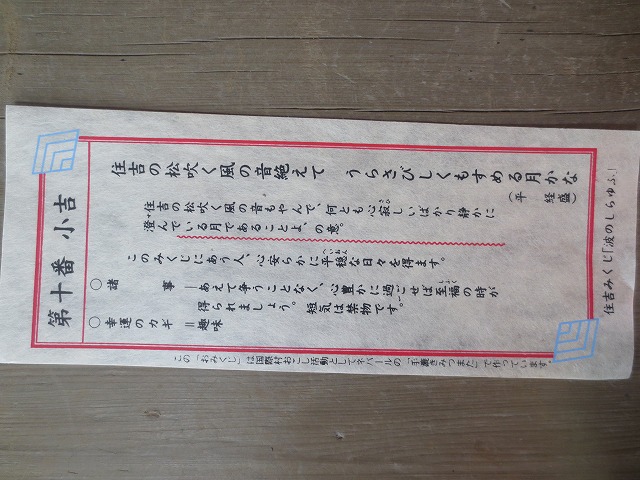 住吉みくじ「波のしらゆふ」
第十番 小吉
住吉の松吹く風の音絶えて うらさびしくもすめる月かな
(平 経盛)
*住吉の松吹く風の音もやんで、何とも心寂しいばかり静かに
澄んでいる月であることよ、の意。
このみくじにあう人、心安らかに平穏な日々を得ます。
○諸 事―あえて争うことなく、心豊かに過ごせば至福の時が
得られましょう。短気は禁物です。
○幸運のカギ=趣味
この「おみくじ」は国際村おこし活動としてネパールの「手漉きみつまた」で作っています。